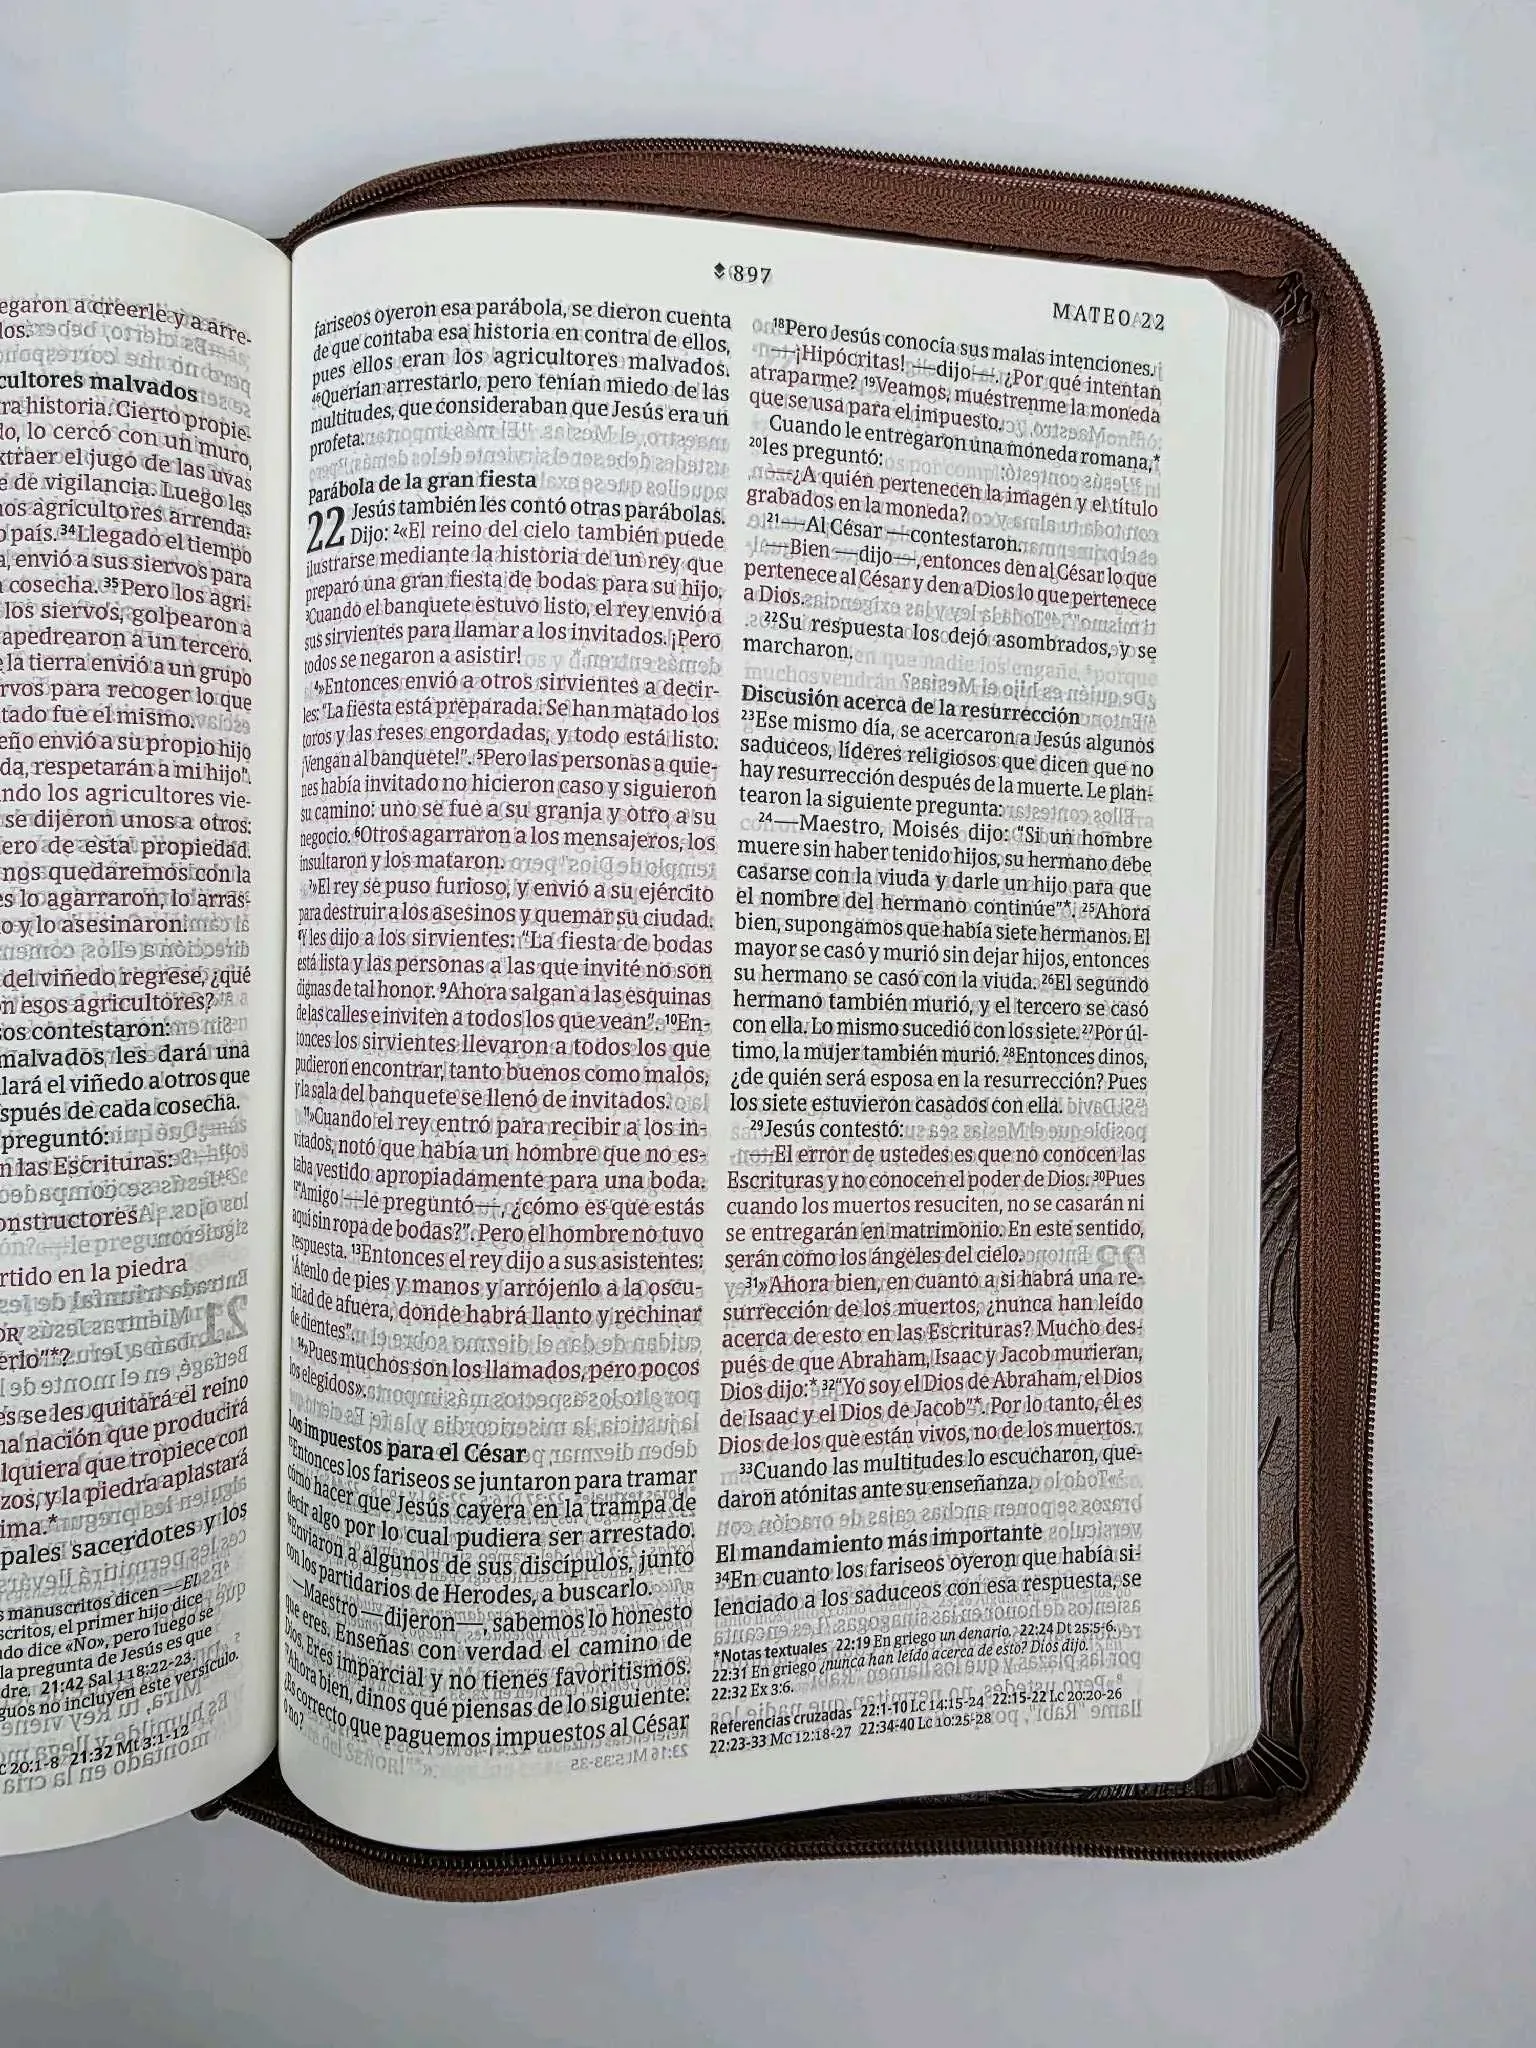 egaron a creerle y a arre-
los.
cultores malvados
ra historia. Cierto propie-
do, lo cercó con un muro,
xtraer el jugo de las uvas
e de vigilancia. Luego les
nos agricultores arrenda-
o país. 34Llegado el tiempo
a, envió a sus siervos para
a cosecha. 35Pero los agri-
los siervos, golpearon a
apedrearon a un tercero.
e la tierra envió a un grupo
rvos para recoger lo que
tado fue el mismo.
eño envió a su propio hijo
da, respetarán a mi hijo".
ando los agricultores vie-
se dijeron unos a otros:
ero de esta propiedad.
nos quedaremos con la
es lo agarraron, lo arras-
o y lo asesinaron.
del viñedo regrese, ¿qué
on esos agricultores?
sos contestaron:
malvados les dará una
lará el viñedo a otros que
spués de cada cosecha.
preguntó:
n las Escrituras:
onstructores
rtido en la piedra
OR
erlo"*?
es se les quitará el reino
na nación que producirá
lquiera que tropiece con
zos, y la piedra aplastará
ima.*
pales sacerdotes y los
s manuscritos dicen —El
scritos, el primer hijo dice
ndo dice «No», pero luego se
la pregunta de Jesús es que
dre. 21:42 Sal 118:22-23.
guos no incluyen este versículo.
c 20:1-8 21:32 Mt 3:1-12
897
MATEO 22
fariseos oyeron esa parábola, se dieron cuenta
de que contaba esa historia en contra de ellos,
pues ellos eran los agricultores malvados.
46Querían arrestarlo, pero tenían miedo de las
multitudes, que consideraban que Jesús era un
profeta.
Parábola de la gran fiesta
22 Jesús también les contó otras parábolas.
Dijo: 2«El reino del cielo también puede
ilustrarse mediante la historia de un rey que
preparó una gran fiesta de bodas para su hijo.
3Cuando el banquete estuvo listo, el rey envió a
sus sirvientes para llamar a los invitados. ¡Pero
todos se negaron a asistir!
4»Entonces envió a otros sirvientes a decir-
les: "La fiesta está preparada. Se han matado los
toros y las reses engordadas, y todo está listo.
¡Vengan al banquete!". 5Pero las personas a quie-
nes había invitado no hicieron caso y siguieron
su camino: uno se fue a su granja y otro a su
negocio. 6Otros agarraron a los mensajeros, los
insultaron y los mataron.
7»El rey se puso furioso, y envió a su ejército
para destruir a los asesinos y quemar su ciudad.
8Y les dijo a los sirvientes: "La fiesta de bodas
está lista y las personas a las que invité no son
dignas de tal honor. 9Ahora salgan a las esquinas
de las calles e inviten a todos los que vean". 10En-
tonces los sirvientes llevaron a todos los que
pudieron encontrar, tanto buenos como malos,
y la sala del banquete se llenó de invitados.
11»Cuando el rey entró para recibir a los in-
vitados, notó que había un hombre que no es-
taba vestido apropiadamente para una boda.
12"Amigo —le preguntó—, ¿cómo es que estás
aquí sin ropa de bodas?". Pero el hombre no tuvo
respuesta. 13Entonces el rey dijo a sus asistentes:
"Átenlo de pies y manos y arrójenlo a la oscu-
ridad de afuera, donde habrá llanto y rechinar
de dientes".
14»Pues muchos son los llamados, pero pocos
los elegidos».
Los impuestos para el César
15Entonces los fariseos se juntaron para tramar
cómo hacer que Jesús cayera en la trampa de
decir algo por lo cual pudiera ser arrestado.
16Enviaron a algunos de sus discípulos, junto
con los partidarios de Herodes, a buscarlo.
—Maestro —dijeron—, sabemos lo honesto
que eres. Enseñas con verdad el camino de
Dios. Eres imparcial y no tienes favoritismos.
17Ahora bien, dinos qué piensas de lo siguiente:
¿Es correcto que paguemos impuestos al César
o no?
18Pero Jesús conocía sus malas intenciones.
—¡Hipócritas! —dijo—. ¿Por qué intentan
atraparme? 19Veamos, muéstrenme la moneda
que se usa para el impuesto.
Cuando le entregaron una moneda romana,*
20les preguntó:
—¿A quién pertenecen la imagen y el título
grabados en la moneda?
21—Al César —contestaron.
—Bien —dijo—, entonces den al César lo que
pertenece al César y den a Dios lo que pertenece
a Dios.
22Su respuesta los dejó asombrados, y se
marcharon.
Discusión acerca de la resurrección
23Ese mismo día, se acercaron a Jesús algunos
saduceos, líderes religiosos que dicen que no
hay resurrección después de la muerte. Le plan-
tearon la siguiente pregunta:
24—Maestro, Moisés dijo: "Si un hombre
muere sin haber tenido hijos, su hermano debe
casarse con la viuda y darle un hijo para que
el nombre del hermano continúe"*. 25Ahora
bien, supongamos que había siete hermanos. El
mayor se casó y murió sin dejar hijos, entonces
su hermano se casó con la viuda. 26El segundo
hermano también murió, y el tercero se casó
con ella. Lo mismo sucedió con los siete. 27Por úl-
timo, la mujer también murió. 28Entonces dinos,
¿de quién será esposa en la resurrección? Pues
los siete estuvieron casados con ella.
29Jesús contestó:
—El error de ustedes es que no conocen las
Escrituras y no conocen el poder de Dios. 30Pues
cuando los muertos resuciten, no se casarán ni
se entregarán en matrimonio. En este sentido,
serán como los ángeles del cielo.
31»Ahora bien, en cuanto a si habrá una re-
surrección de los muertos, ¿nunca han leído
acerca de esto en las Escrituras? Mucho des-
pués de que Abraham, Isaac y Jacob murieran,
Dios dijo:* 32"Yo soy el Dios de Abraham, el Dios
de Isaac y el Dios de Jacob"*. Por lo tanto, él es
Dios de los que están vivos, no de los muertos.
33Cuando las multitudes lo escucharon, que-
daron atónitas ante su enseñanza.
El mandamiento más importante
34En cuanto los fariseos oyeron que había si-
lenciado a los saduceos con esa respuesta, se
*Notas textuales 22:19 En griego un denario. 22:24 Dt 25:5-6.
22:31 En griego ¿nunca han leído acerca de esto? Dios dijo.
22:32 Ex 3:6.
Referencias cruzadas 22:1-10 Lc 14:15-24 22:15-22 Lc 20:20-26
22:23-33 Mc 12:18-27 22:34-40 Lc 10:25-28